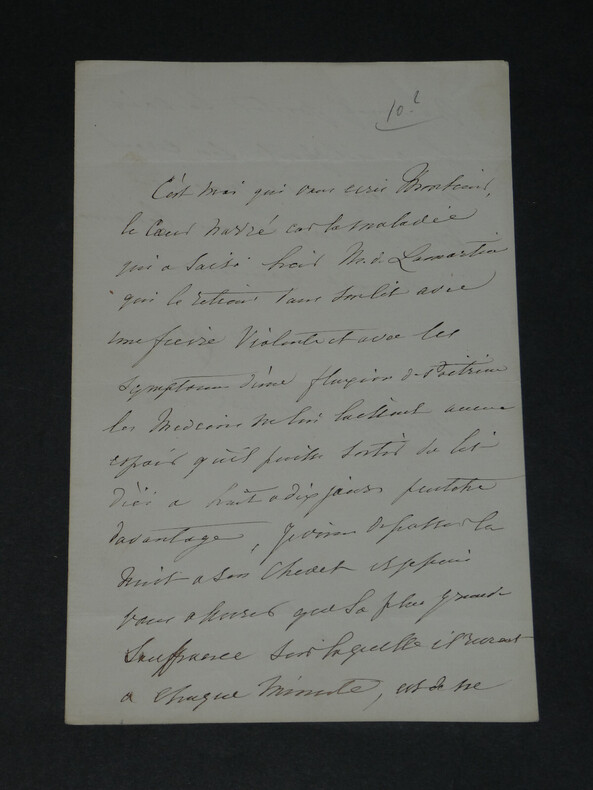 10
C'est moi qui vous écris Monsieur,
le cœur navré car la maladie
qui a saisi hier M. de Lamartine
qui le retient dans son lit avec
une fievre violente et avec les
symptomes d'une fluxion de Poitrine
les Medecins ne lui laissent aucun
espoir qu'il puisse sortir de lit
d'ici a huit a dix jours peutetre
davantage, je viens de passer la
nuit a son chevet et je puis
vous assurer que sa plus grande
souffrance sur laquelle il revient
a chaque minute, est de ne